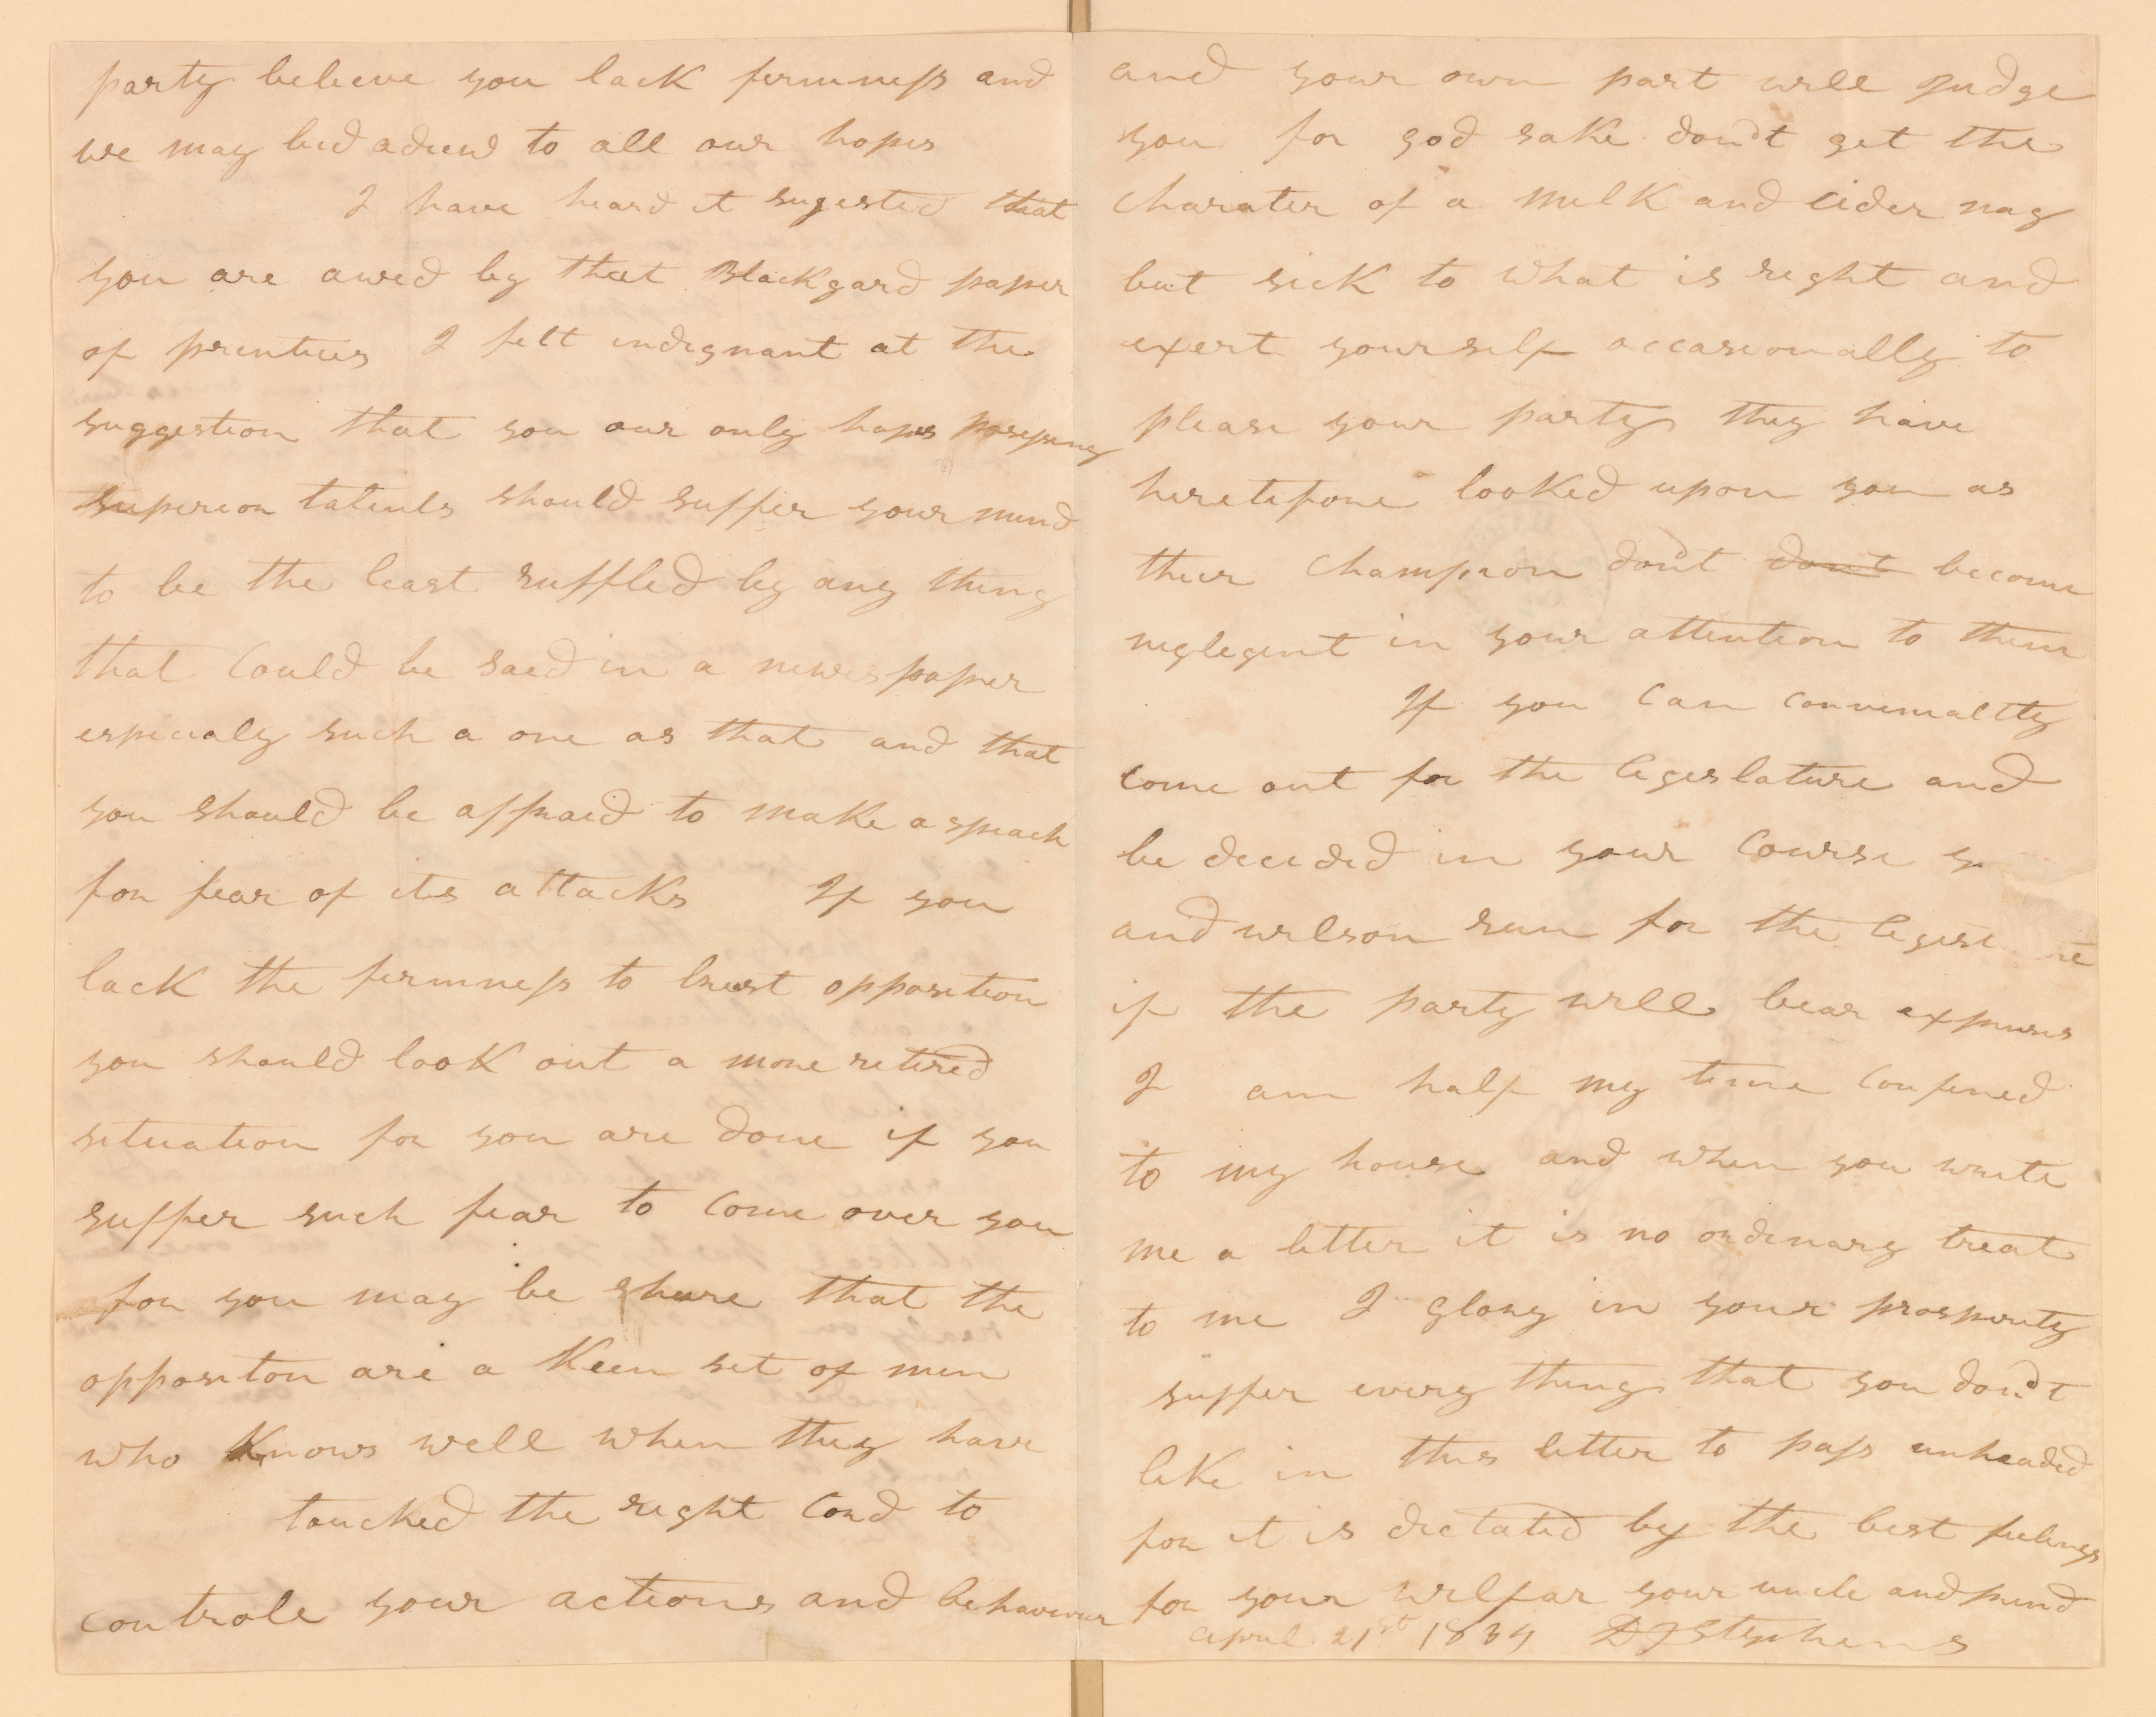 party beleeve you lack firmness and
we may bid adieud to all our hopes
I have heard it sugested that
you are awed by that Blackgard paper
of prentices I felt indignant at the
suggestion that you our only hopes posessing
superior talents should suffer your mind
to be the least ruffled by any thing
that Could be said in a news paper
especialy such a one as that and that
you should be affraid to make a speach
for fear of its attacks If you
lack the firmness to brest opposition
you should look out a more retired
situation for you are done if you
suffer such fear to Come over you
for you may be shure that the
oppositon are a Keen set of men
who Knows well when they have
toucked the right Cord to
controle your actions and behaviour
and your own part will Judge
you for god sake don't get the
Charater of a milk and cider nag
but sick to what is right and
exert yourself occasionally to
please your party they have
heretefore looked upon you as
their Champion don't dont become
neglegent in your attention to them
If you Can
come out for the legislature and
be decided in your Course
and wilson run for the
if the party will bear expenses
I am half my time Confined
to my house and when you write
me a letter it is no ordinary treat
to me I glory in your prosperity
suffer every thing that you don't
like in this letter to pass unheaded
for it is dictated by the best feelings
for your wilfar your uncle and frend
april 21st 1834 D J Stephens